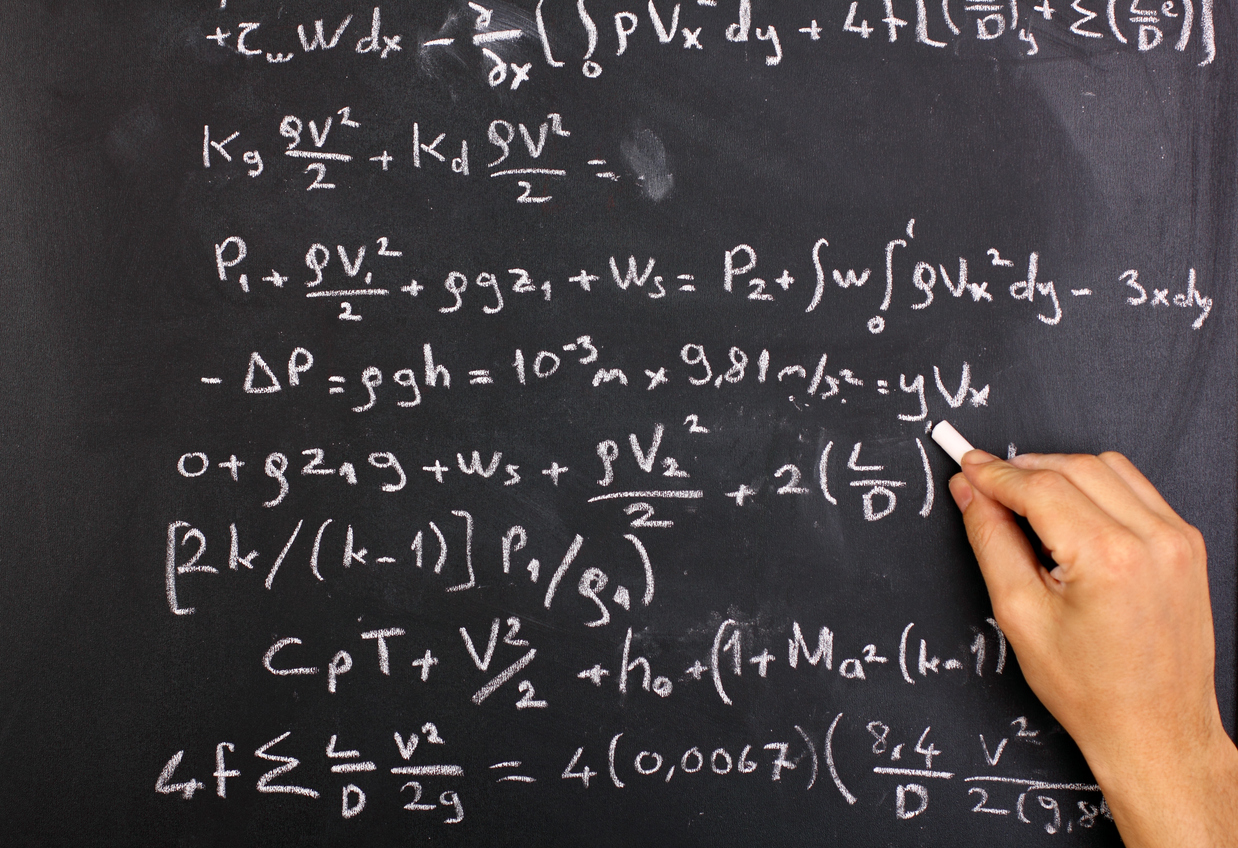 +τ_w W dx − ∂/∂x [ ∫₀ ρ V_x dy + 4f [(/D)_y + Σ(Le/D)]
K_g ρV²/2 + K_d ρV²/2 =
P₁ + ρV₁²/2 + ρgz₁ + W_s = P₂ + ∫w∫₀¹ ρV_x² dy − 3xdy
− ΔP = ρgh = 10⁻³ m × 9,81 m/s² = yV_x
0 + ρz₁g + W_s + ρV₂²/2 + 2(L/D)
[2k/(k−1)] P₁/ρ₁)
CpT + V²/2 + h₀ + (1 + Ma² (k−1)
4f Σ L/D V²/2g = 4(0,0067)(8,4/D V²/2(9,8